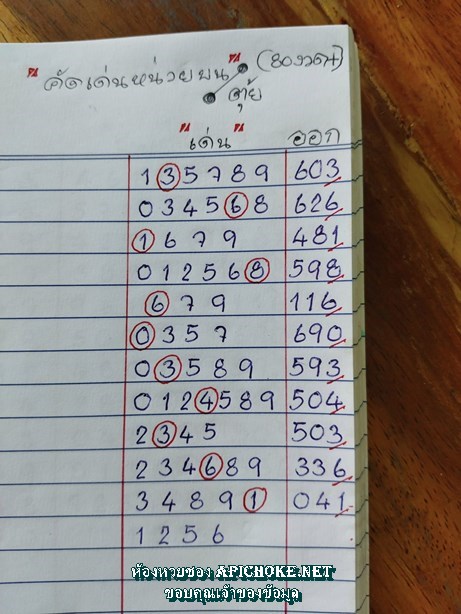 "คัดเด่นหน่วยบน" (80งวด+)
ตุ้ย
"เด่น" ออก
1 3 5 7 8 9 603
0 3 4 5 6 8 626
1 6 7 9 481
0 1 2 5 6 8 598
6 7 9 116
0 3 5 7 690
0 3 5 8 9 593
0 1 2 4 5 8 9 504
2 3 4 5 503
2 3 4 6 8 9 336
3 4 8 9 1 041
1 2 5 6
ห้องหวยซอง APICHOKE.NET
ขอบคุณเจ้าของข้อมูล